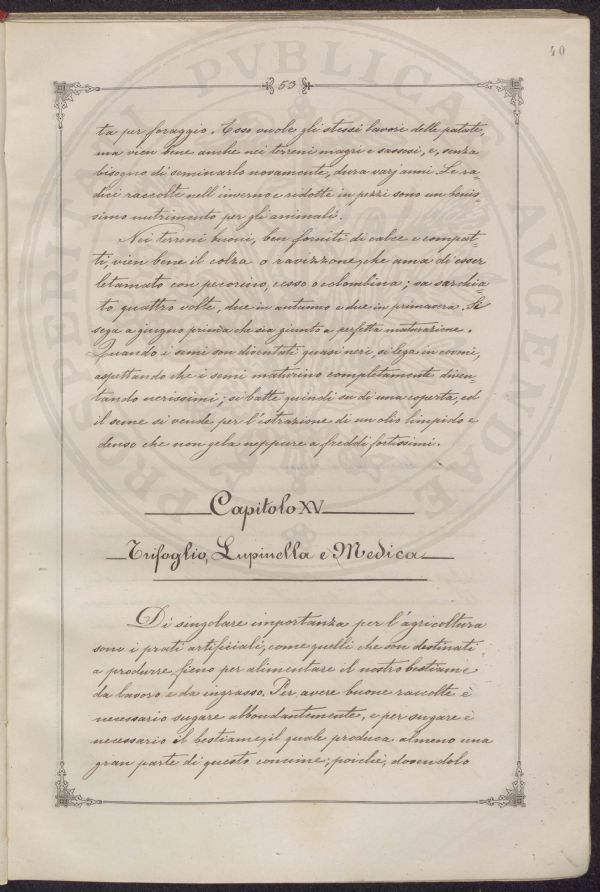 40
53
ta per foraggio. Esso vuole gli stessi lavori delle patate,
ma vien bene anche nei terreni magri e sassosi, e, senza
bisogno di seminarlo novamente, dura varj anni. Le ra-
dici raccolte nell'inverno e ridotte in pezzi sono un benis-
simo nutrimento per gli animali.
Nei terreni buoni, ben forniti di calce e compat-
ti, vien bene il colza o ravizzone, che ama di esser
letamato con pecorino, cesso o colombina; va sarchia-
to quattro volte, due in autunno e due in primavera. Si
sega a giugno prima che sia giunto a perfetta maturazione.
Quando i semi son diventati quasi neri, si lega in covoni,
aspettando che i semi maturino completamente diven-
tando nerissimi; si batte quindi su di una coperta, ed
il seme si vende per l'estrazione di un olio limpido e
denso che non gela neppure a freddi fortissimi.
Capitolo XV
Trifoglio, Lupinella e Medica
Di singolare importanza per l'agricoltura
sono i prati artificiali, come quelli che son destinati
a produrre fieno per alimentare il nostro bestiame
da lavoro e da ingrasso. Per avere buone raccolte è
necessario sugare abbondantemente, e per sugare è
necessario il bestiame, il quale produca almeno una
gran parte di questo concime; poichè, dovendolo
PROSPERITATI PVBLICAE AVGENDAE